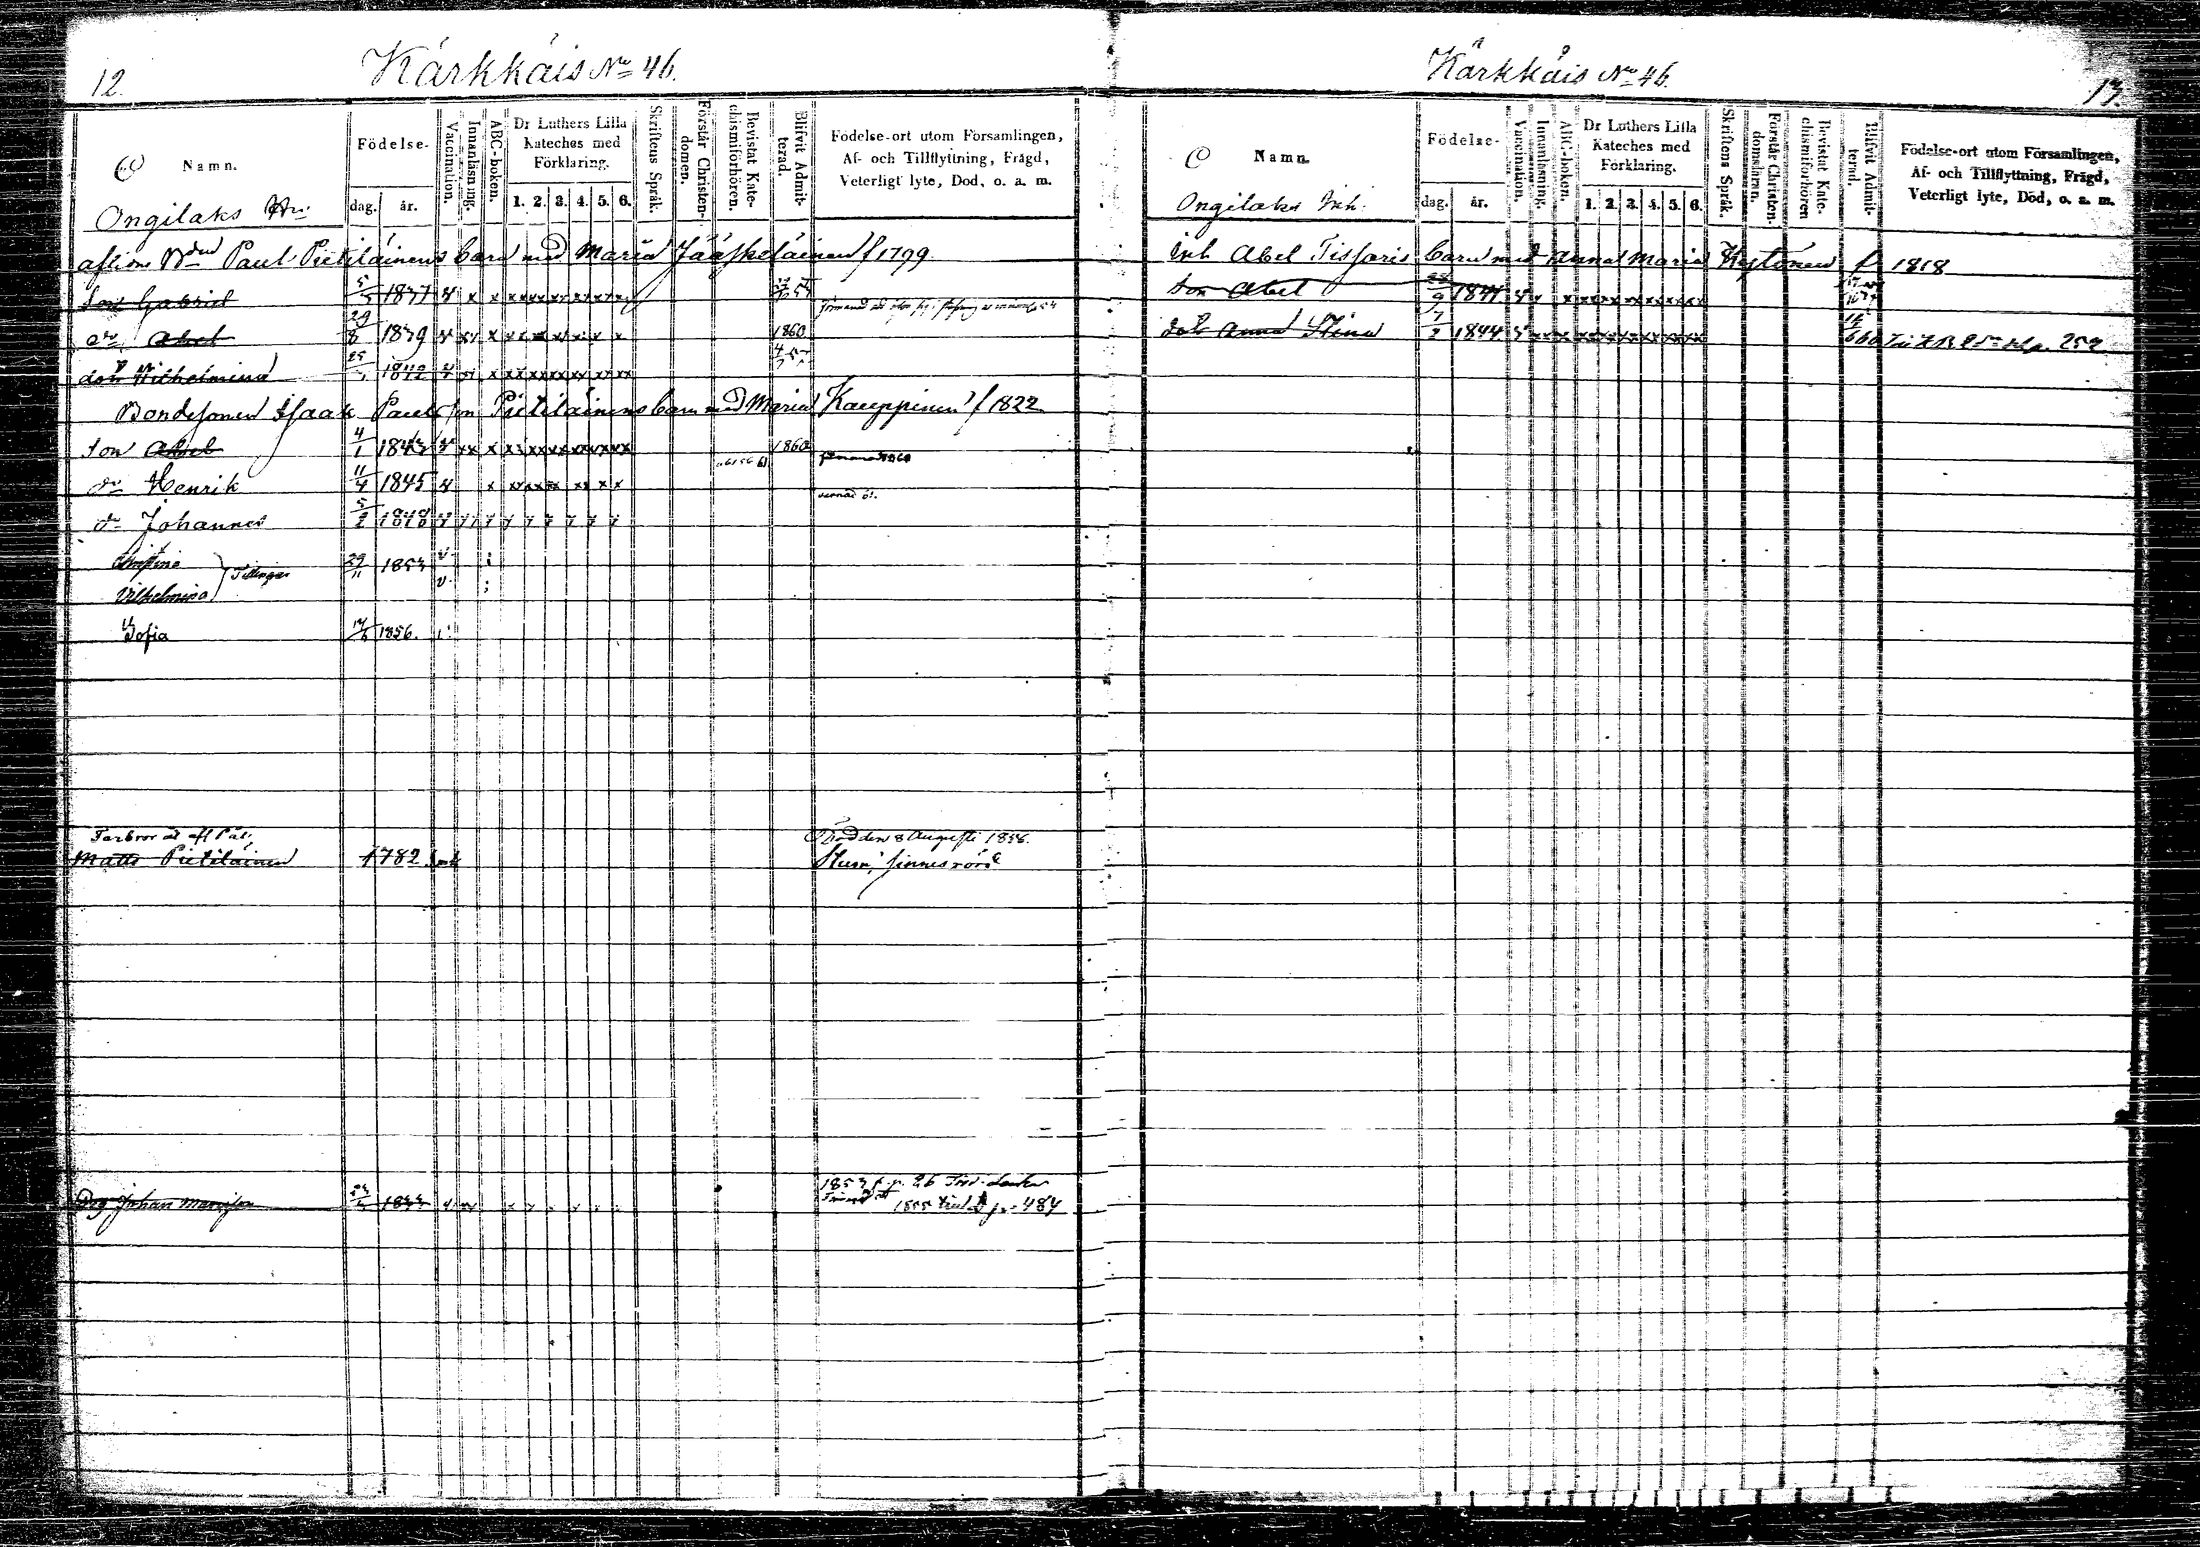 12.
Kärkkäis No 46.
Namn.
Födelse-
dag.
år.
Vaccination.
Innanläsning.
ABC-boken.
Dr Luthers Lilla
Kateches med
Förklaring.
1. 2. 3. 4. 5. 6.
Skriftens Språk.
Förstår Christen-
domen.
Bevistat Kate-
chismiförhören.
Blifvit Admit-
terad.
Födelse-ort utom Församlingen,
Af- och Tillflyttning, Frägd,
Veterligt lyte, Död, o. a. m.
Ongilaks
Paul Pietiläinens barn med Maria Jääskeläinen f 1799
son Gabriel 5/5 1837
dn Abel 29/8 1839 1860
dotr Wilhelmina 1842
Bondesonen Isaak Paulsson Pietiläinens barn med Maria Kauppinen f 1822
son Abel 4/1 1843 1860
dn Henrik 11/4 1845
dn Johannes 5/2 1848
Christina
Vilhelmina
Tvillingar 29/11 1853
Sofia 1856.
Farbror
Matts Pietiläinen 1782
Död den 8 Augusti 1856.
Stum, sinnesrörd
Drg Johan 1833
1853 f. p. 26
1855 p. 484
Kärkkäis No 46.
13.
Namn.
Födelse-
dag.
år.
Vaccination.
Innanläsning.
ABC-boken.
Dr Luthers Lilla
Kateches med
Förklaring.
1. 2. 3. 4. 5. 6.
Skriftens Språk.
Förstår Christen-
domsläran.
Bevistat Kate-
chismiförhören
Blifvit Admit-
terad.
Födelse-ort utom Församlingen,
Af- och Tillflyttning, Frägd,
Veterligt lyte, Död, o. a. m.
Ongilaks Inh.
Inh Abel Tissaris barn med Anna Maria f 1818
son Abel 28/9 1841
dotr Anna Stina 7/2 1844